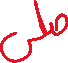 صلى